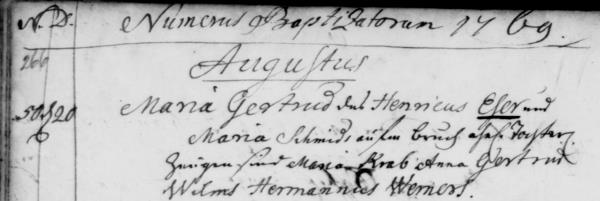 N. D. Numerus Baptizatorum 1769.
266 Augustus
50 20 Maria Gertrud des Henricus Eser und
Maria Schmids aufm bruch Tochter
Zeugen sind Maria Krab Anna Gertrud
Wilms Hermannus Wemers.